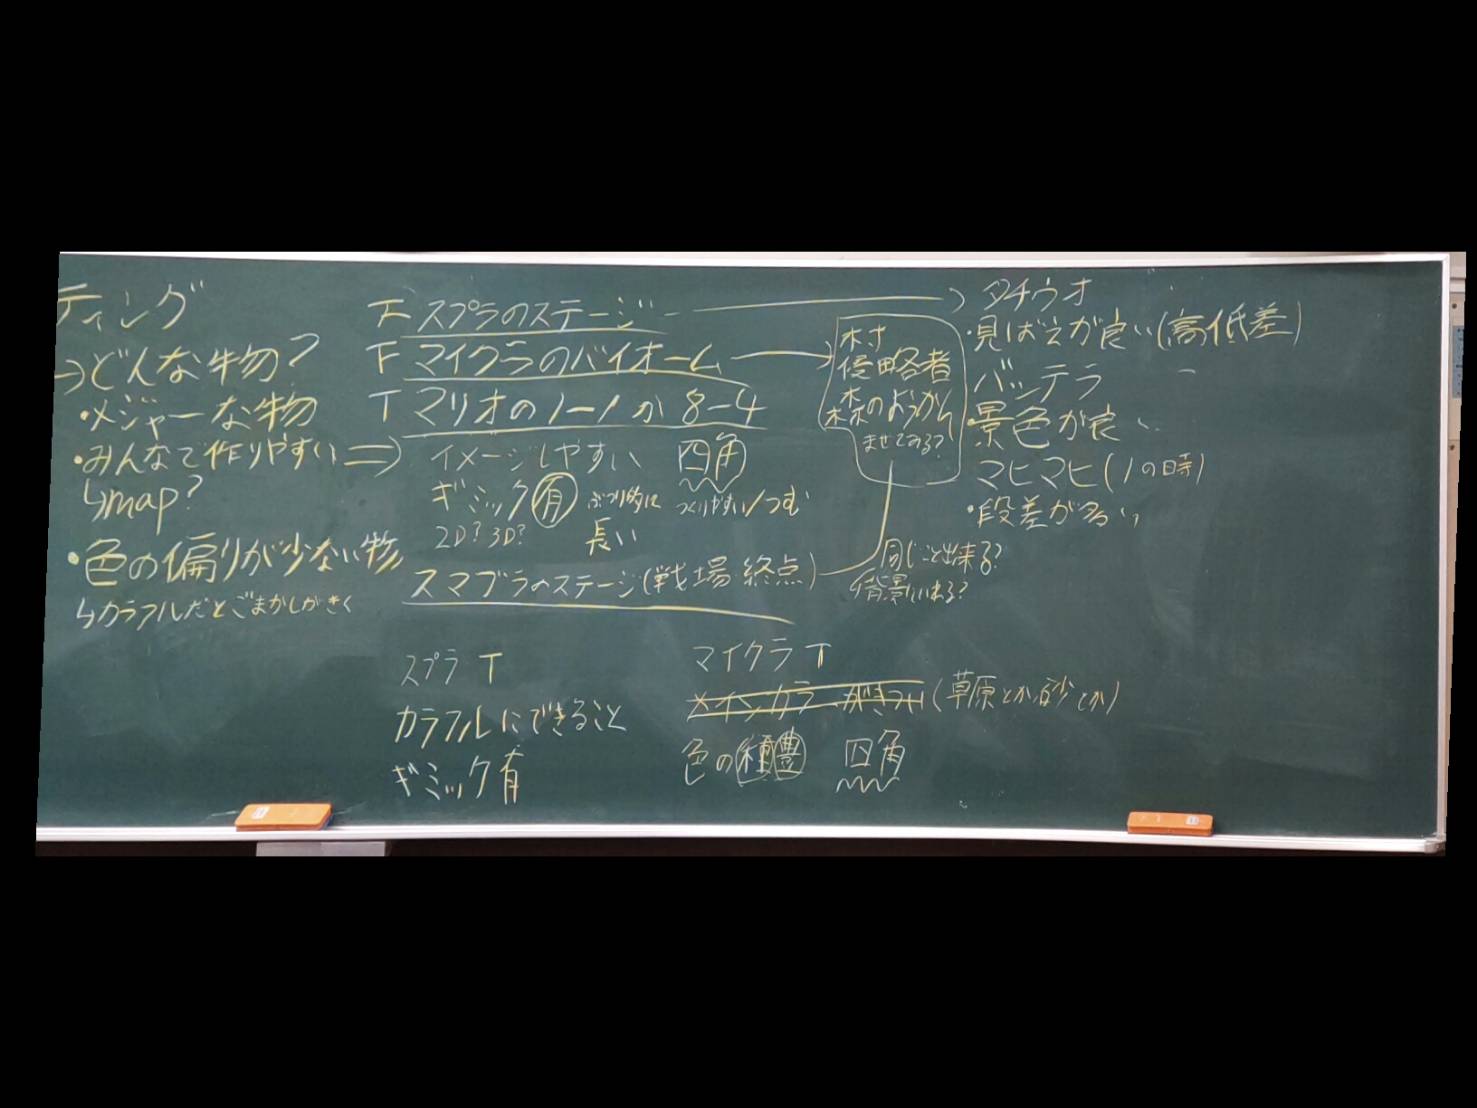 ティング
→どんな物?
・メジャーな物
・みんなで作りやすい⇒
↳map?
・色の偏りが少ない物
↳カラフルだとごまかしがきく
下 スプラのステージ →
F マイクラのバイオーム →
T マリオの1-1か8-4
イメージしやすい 四角
ギミック有 ぶつり的に つくりやすい/つむ
2D?3D? 長い
スマブラのステージ(戦場 終点)
村
侵略者
森のようかん
ませてみる?
同じこと出来る?
背景いれる?
タチウオ
・見ばえが良い(高低差)
バッテラ
・景色が良い
マヒマヒ(1の時)
・段差が多い
スプラ T
カラフルにできること
ギミック有
マイクラ T
メインカラーがきつい(草原とか砂とか)
色の種豊 四角